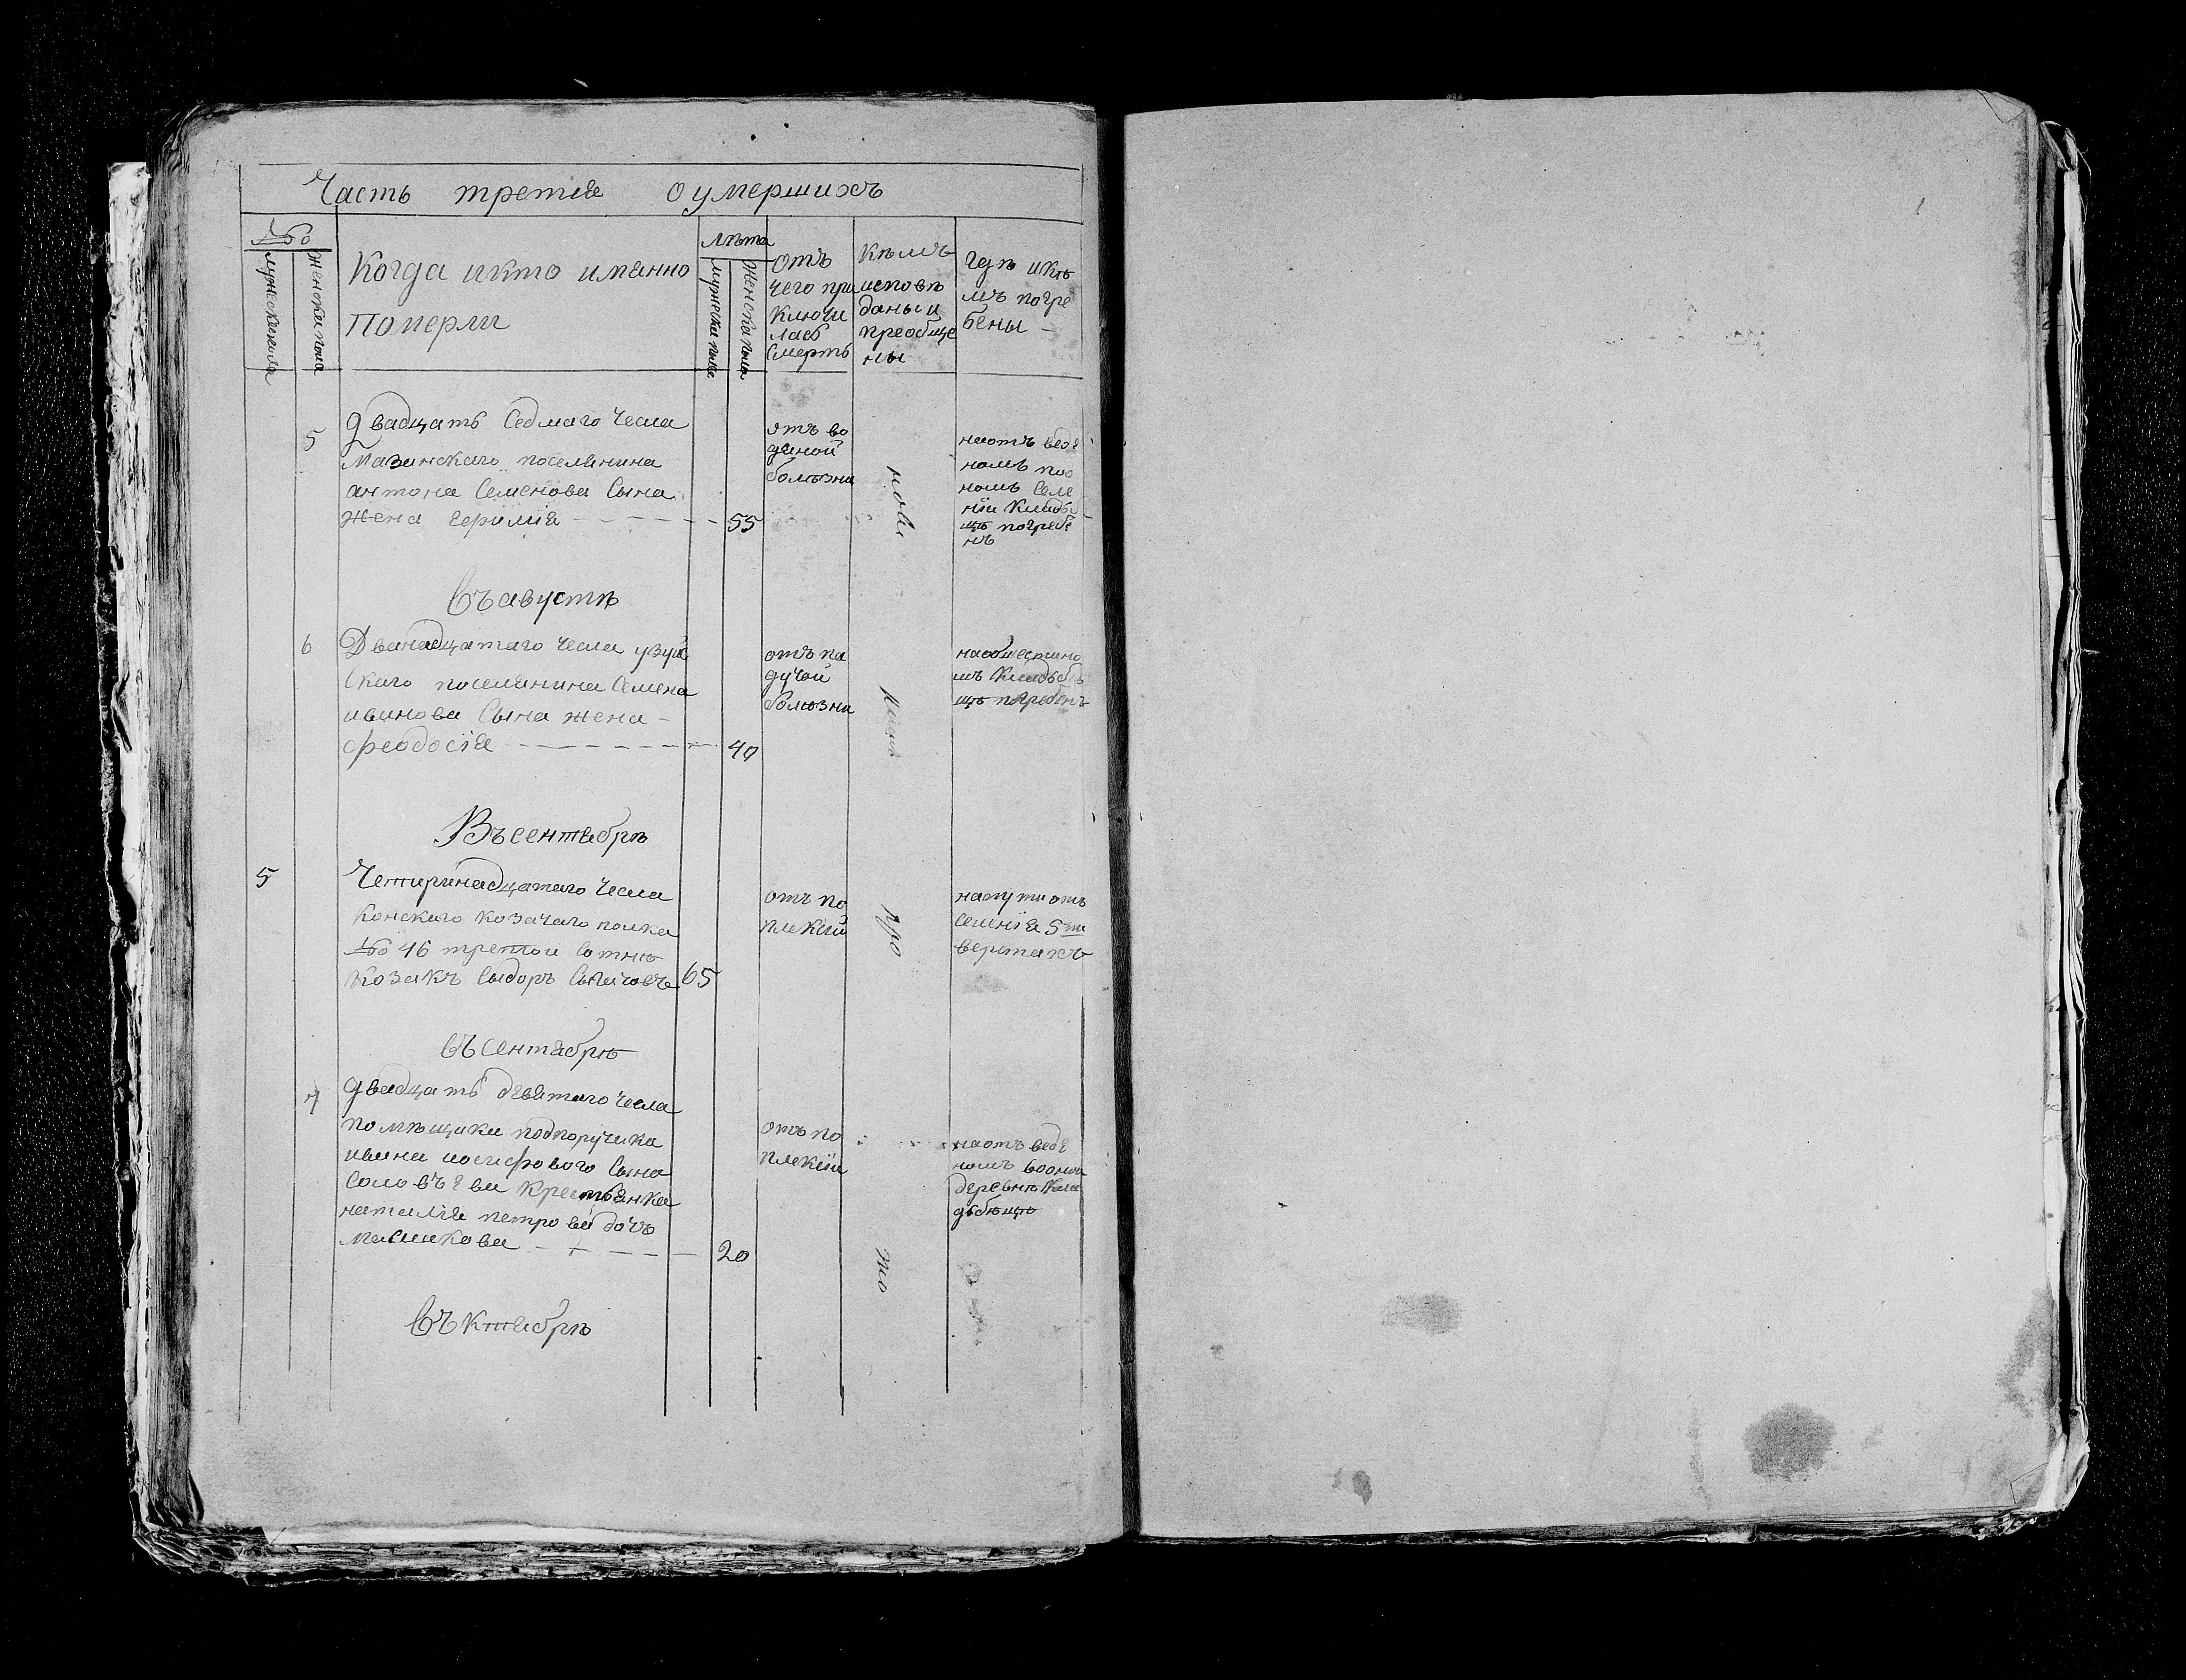 Часть третiя оумершихъ
№
мужеска пола
женска пола
Когда икто имянно
померли
лѣта
мужеска пола
женска пола
отъ
чего при
ключи
лась
смерть
Кѣмъ
исповѣ
даны и
преобще
ны
гдѣ икѣ
мъ погре
бены
5
двадцать седмаго чесла
антона семенова сына
жена
55
отъ во
деной
болѣзни
наотъ веде
номъ
номъ селе
нiи кладби
щѣ погребе
нъ
Въ авустѣ
6
Дванадцатаго чесла
скаго поселянина семена
иванова сына жена
феодосiя
40
отъ па
дучой
болѣзни
мъ кладби
щѣ погребенъ
Въ сентябрѣ
5
Четиринадцатаго чесла
донскаго козачаго полка
№ 46 третои сотнѣ
козакъ сыдоръ
65
отъ по
плексiи
напути отъ
селенiя 5ти
верстахъ
въ сентябрѣ
7
двадцать девятаго чесла
помѣщика подпоручика
ивана иосифового сына
соловъева крестьянка
наталiя петрова дочъ
20
отъ по
плексiи
наотъ веде
номъ
деревнѣ кла
дьбѣщѣ
Въ ктябрѣ